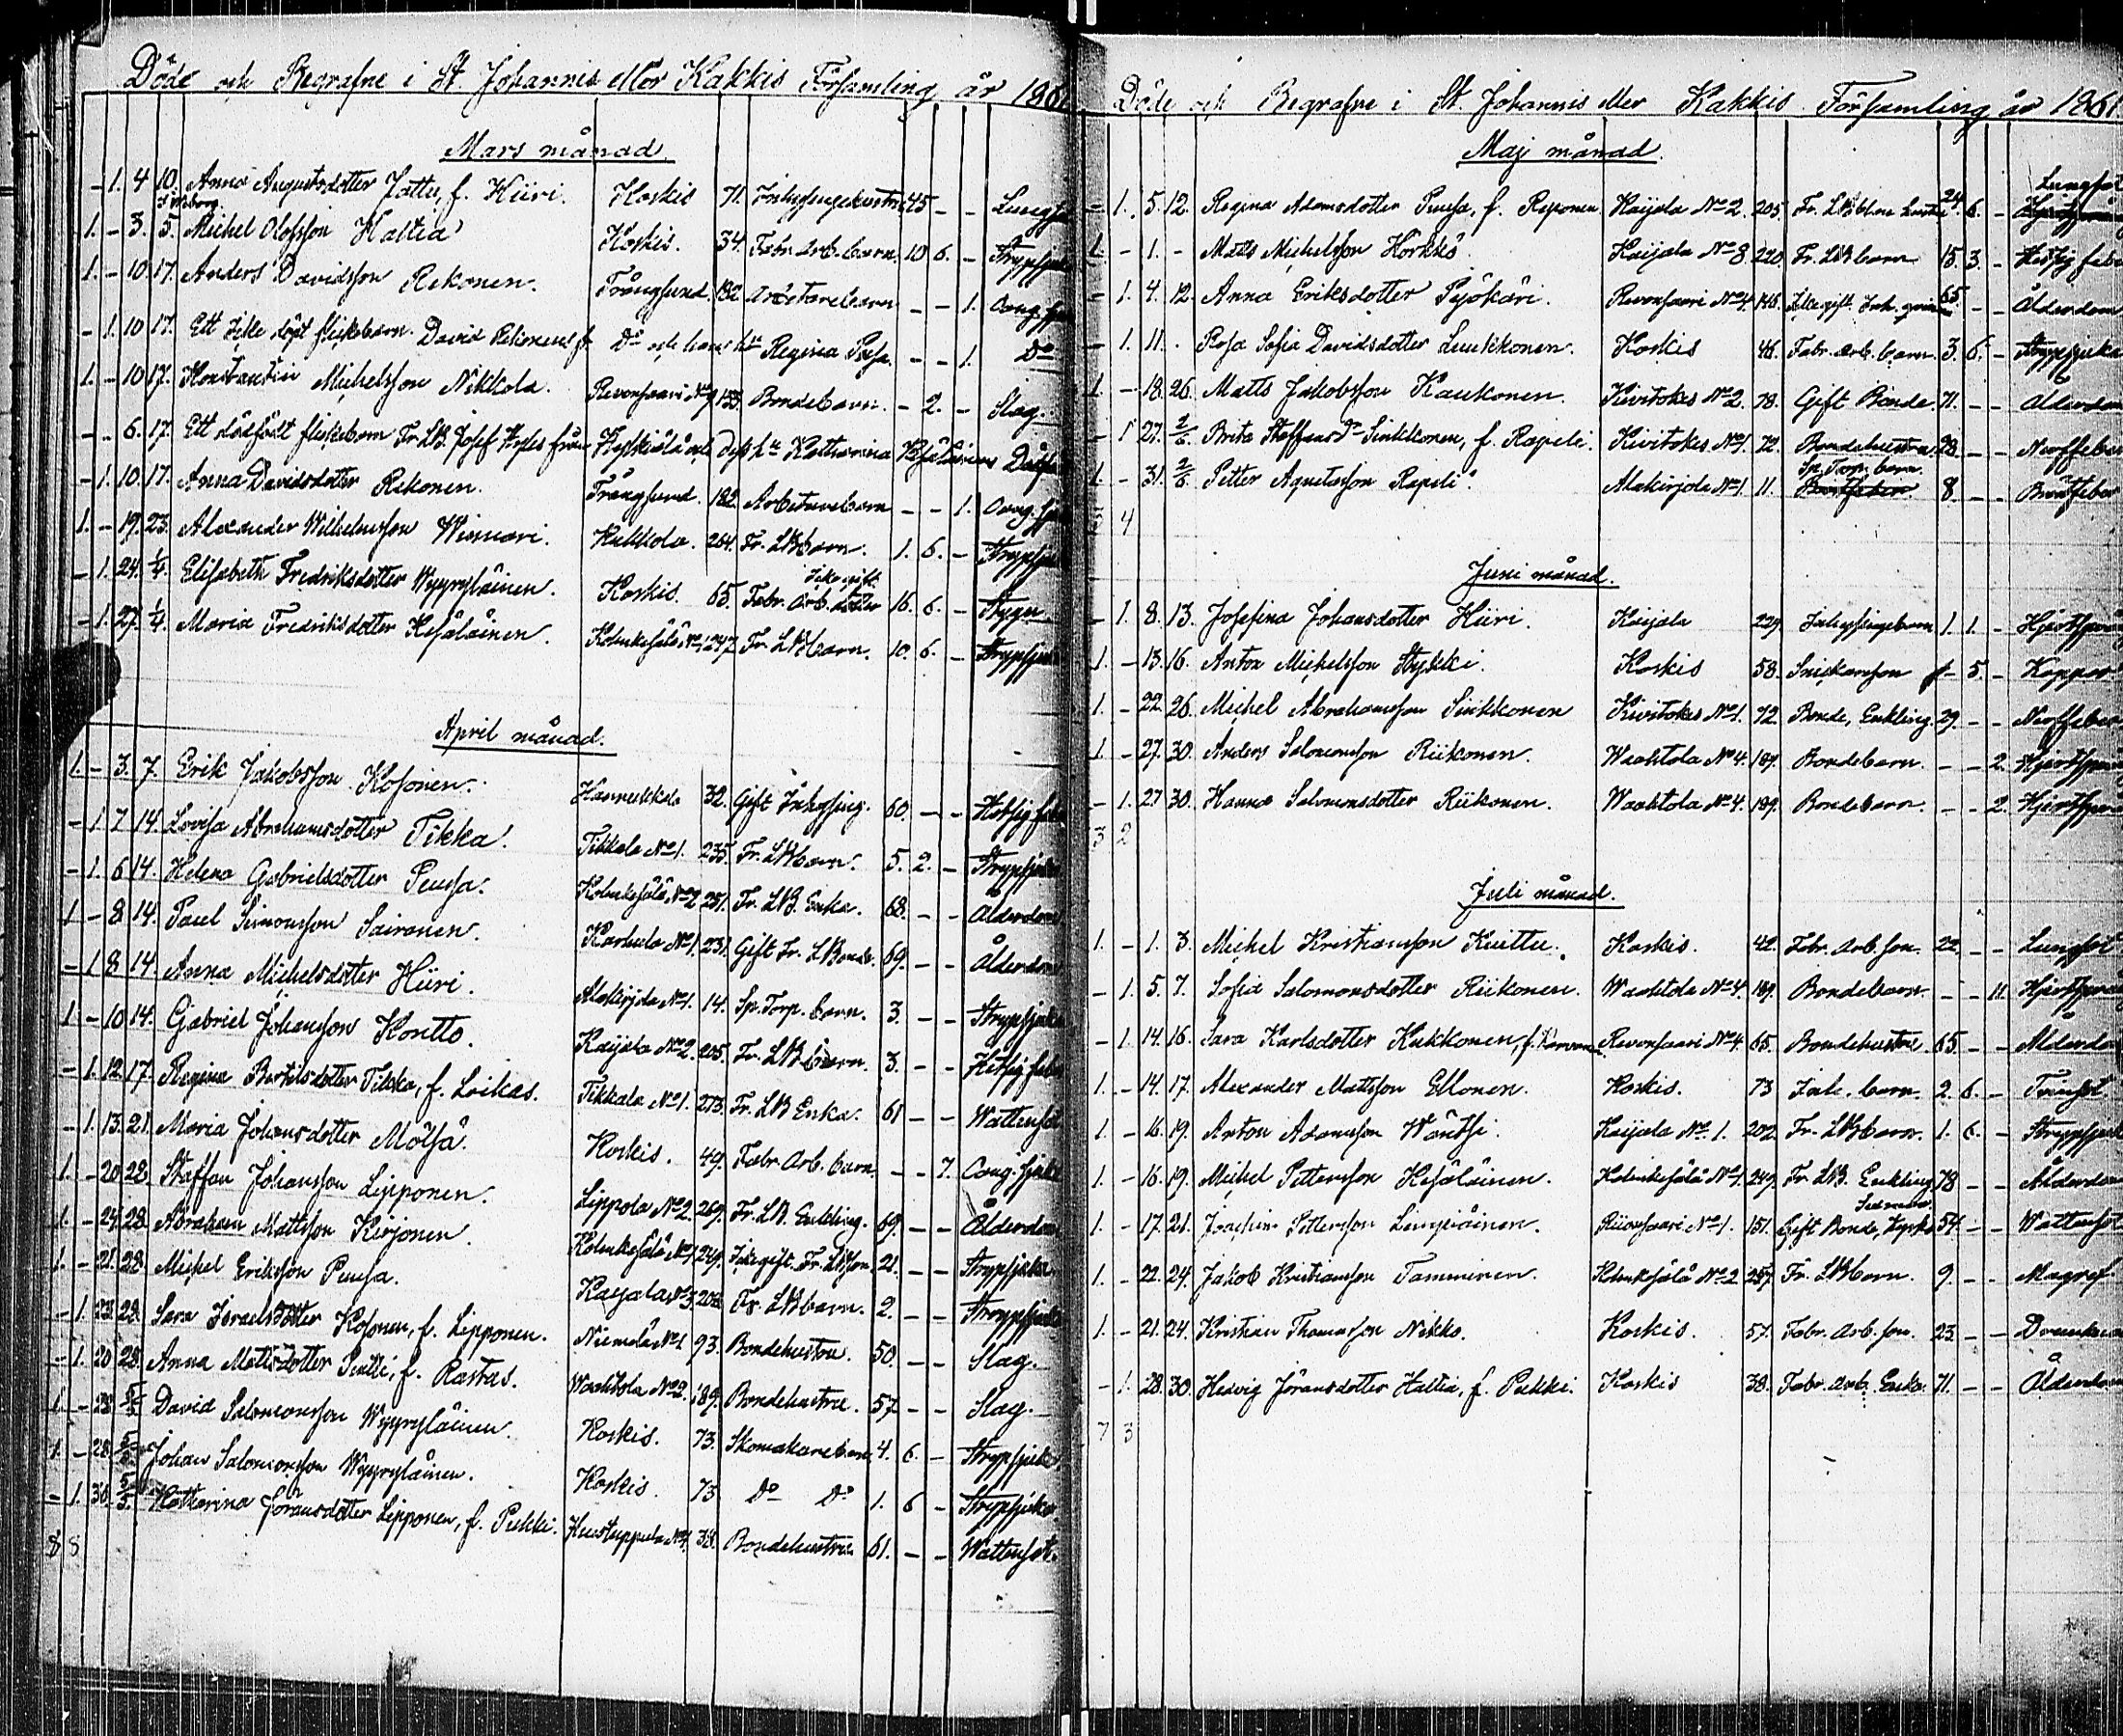 Döde och Begrafne i St. Johannis eller Kakkis Församling år 186
Mars månad.
- 1. 4 10. Anna Augustsdotter Jattu, f. Hiiri. Koskis 71. Inhysingehustru 45 - - Lungs
i Wiborg.
1. - 3. 5. Michel Olofsson Haltia Koskis. 34. Fabr. Arb. barn. 10 6. - Strypsju
1. - 10. 17. Anders Davidsson Rekonen. Trångsund. 182. Arbetarebarn - - 1. Oang. sju
- 1. 10 17. Ett icke döpt flickebarn David Do och hans hu Regina - - 1. Do
1. - 10 17. Konstantin Michelsson Nikkola. Revonsaari No 9 153. Bondebarn. - 2. - Slag.
- - 6. 17. Ett dödfödt flickebarn Fr. LB. Josef från och dess hu Katharina
- 1. 10. 17. Anna Davidsdotter Rekonen. Trångsund. 182. Arbetarebarn - - 1. Oang. sju
1. - 19. 23. Alexander Wilhelmsson Wiemari. Kukkola. 264. Fr. LB barn. 1. 6. - Strypsju
- 1. 24. 1/4. Elisabeth Fredriksdotter Wyyryläinen. Koskis. 65. Fabr. Arb. dotter 16. 6. -
Icke gift.
- 1. 27. 1/4. Maria Fredriksdotter Kesäläinen. Kolmikesälä No 1 247. Fr. LB barn. 10. 6. - Strypsju
April månad.
1. - 3. 7. Erik Jakobsson Kosonen. Hannukkala 32. Gift Inhysing. 60. - - Hetsig feb
- 1. 7 14. Lovisa Abrahamsdotter Tikka. Tikkala No 1. 235. Fr. LB barn. 5. 2. - Strypsju
- 1. 6 14. Helena Gabrielsdotter Peusa. Kolmikesälä No 2 251. Fr. LB. Enka. 68. - - Ålderdom
1 - 8 14. Paul Simonsson Sairanen. Karhula No 1. 231. Gift Fr. LB onde. 69. - - Ålderdom
- 1 8 14. Anna Michelsdotter Hiiri. Alakirjola No 1. 14. Sp. Torp. barn. 3. - - Strypsjuka
1 - 10 14. Gabriel Johansson Kontto. Kaijala No 2. 205. Fr. LB barn. 3. - - Hetsig feb
- 1. 12 17. Regina Bertilsdotter Tikka, f. Loikas. Tikkala No 1. 273. Fr. LB Enka. 61 - - Wattusot
- 1. 13. 21. Maria Johansdotter Mölsä. Koskis. 49. Fabr. Arb. barn. - - 7. Oang. sjuk
1. - 20 28. Staffan Johansson Lipponen. Lippola No 2. 269. Fr. LB. Enkling. 69. - - Ålderdom
1. - 24. 28. Abraham Mattsson Kirjonen. Kolmikesälä No 1 249. Icke gift. Fr. LB son. 21. - - Strypsjuka
1. - 21. 28. Michel Eriksson Peusa. Kaijala No 3. 208. Fr. LB barn. 2. - - Strypsjuk
- 1. 23. 28. Sara Israelsdotter Kosonen, f. Lipponen. Niemelä No 1 93. Bondehustru. 50. - - Slag.
- 1. 20 28. Anna Mattsdotter f. Rastas. Waahtola No 2. 189. Bondehustru. 57 - - Slag.
1. - 28 5/5 David Salomonsson Wyyryläinen. Koskis. 73. Skomakarebarn 4. 6 - Strypsjuk
1. - 28. 5/5 Johan Salomonsson Wyyryläinen. Koskis. 73 Do Do 1. 6 - Strypsjuka
- 1. 30. 5/5. Katharina Jöransdotter Lipponen, f. Pukki. No 1. 38. Bondehustru 61. - - Wattusot.
8 8
Döde och Begrafne i St. Johannis eller Kakkis Församling år 1861.
Maj månad.
- 1. 5. 12. Regina Adamsdotter Peusa, f. Reponen Kaijala No 2. 205 Fr. LB hustru 24. 6. - Lungsot
1. - 1. - Matts Michelsson Hörkkö. Kaijala No 8. 220. Fr. LB barn 15. 3. - Hetsig feb
- 1. 4. 12. Anna Eriksdotter Pyökäri. Revonsaari No 4. 146. Icke gift Inh. qvinna 65. - - Ålderdom
- 1. 11. . Rosa Sofia Davidsdotter Luukkonen. Koskis 46. Fabr. Arb. barn. 3. 6. - Strypsjuka
1. - 18. 26. Matts Jakobsson Kaukonen. Kiviitokes No 2. 78. Gift Bonde. 71. - - Ålderdom
- 1 27. 2/6. Brita Staffansdr Sinkkonen, f. Rapeli. Kiviitokes No 1. 72. Bondehustru. 28. - - Nerffeber
1. - 31. 2/6. Petter Agnetasson Rapeli. Alakirjola No 1. 11. Sp. Torp. barn 8. - - Brötfeber
3 4
Juni månad.
- 1. 8. 13. Josefina Johansdotter Hiiri. Kaijala 229. Inhysingebarn 1. 1. - Hjertspann
1. - 13. 16. Anton Michelsson Styrkki. Koskis 58. Snickareson - 5. - Koppor
1. - 22. 26. Michel Abrahamsson Sinkkonen Kiviitokes No 1. 72. Bonde, Enkling. 29. - - Nerffeber
1. - 27. 30. Anders Salomonsson Riikonen. Waahtola No 4. 189. Bondebarn. - - 2. Hjertspann
- 1. 27 30. Hanna Salomonsdotter Riikonen. Waahtola No 4. 189. Bondebarn. - - 2. Hjertspann
3 2
Juli månad.
1. - 1. 3. Michel Kristiansson Kuittu. Koskis. 42. Fabr. Arb. son. 22. - - Lungsot
- 1. 5. 7. Sofia Salomonsdotter Riikonen. Waahtola No 4. 189. Bondebarn. - - 11 Hjertspann
- 1. 14. 16. Sara Karlsdotter Kukkonen, f. Revonsaari No 4. 65. Bondehustru. 65. - - Ålderdom
1. - 14. 17. Alexander Mattsson Ellonen. Koskis. 73 Inh. barn. 2. 6. - Tvinsot.
1. - 16. 19. Anton Adamsson Wäntsi. Kaijala No 1. 202. Fr. LB barn. 1. 6. - Strypsjuk
1. - 16. 19. Michel Pettersson Kesäläinen. Kolmikesälä No 1. 249. Fr LB. Enkling 78 - - Ålderdom
1. - 17. 21. Joachim Pettersson Limpiäinen. Revonsaari No 1. 151. Gift Bonde, Kyrko 54. - - Wattusot
1. - 22. 24. Jakob Kristiansson Tamminen. Kolmikesälä No 2 257. Fr. LB barn. 9. - - Magref.
1. - 21. 24. Kristian Thomasson Nikko. Koskis. 57. Fabr. Arb. son. 23. - -
- 1. 28. 30. Hedvig Jöransdotter Haltia, f. Pukki. Koskis 38. Fabr. Arb. Enka. 71. - - Ålderdom
7 3